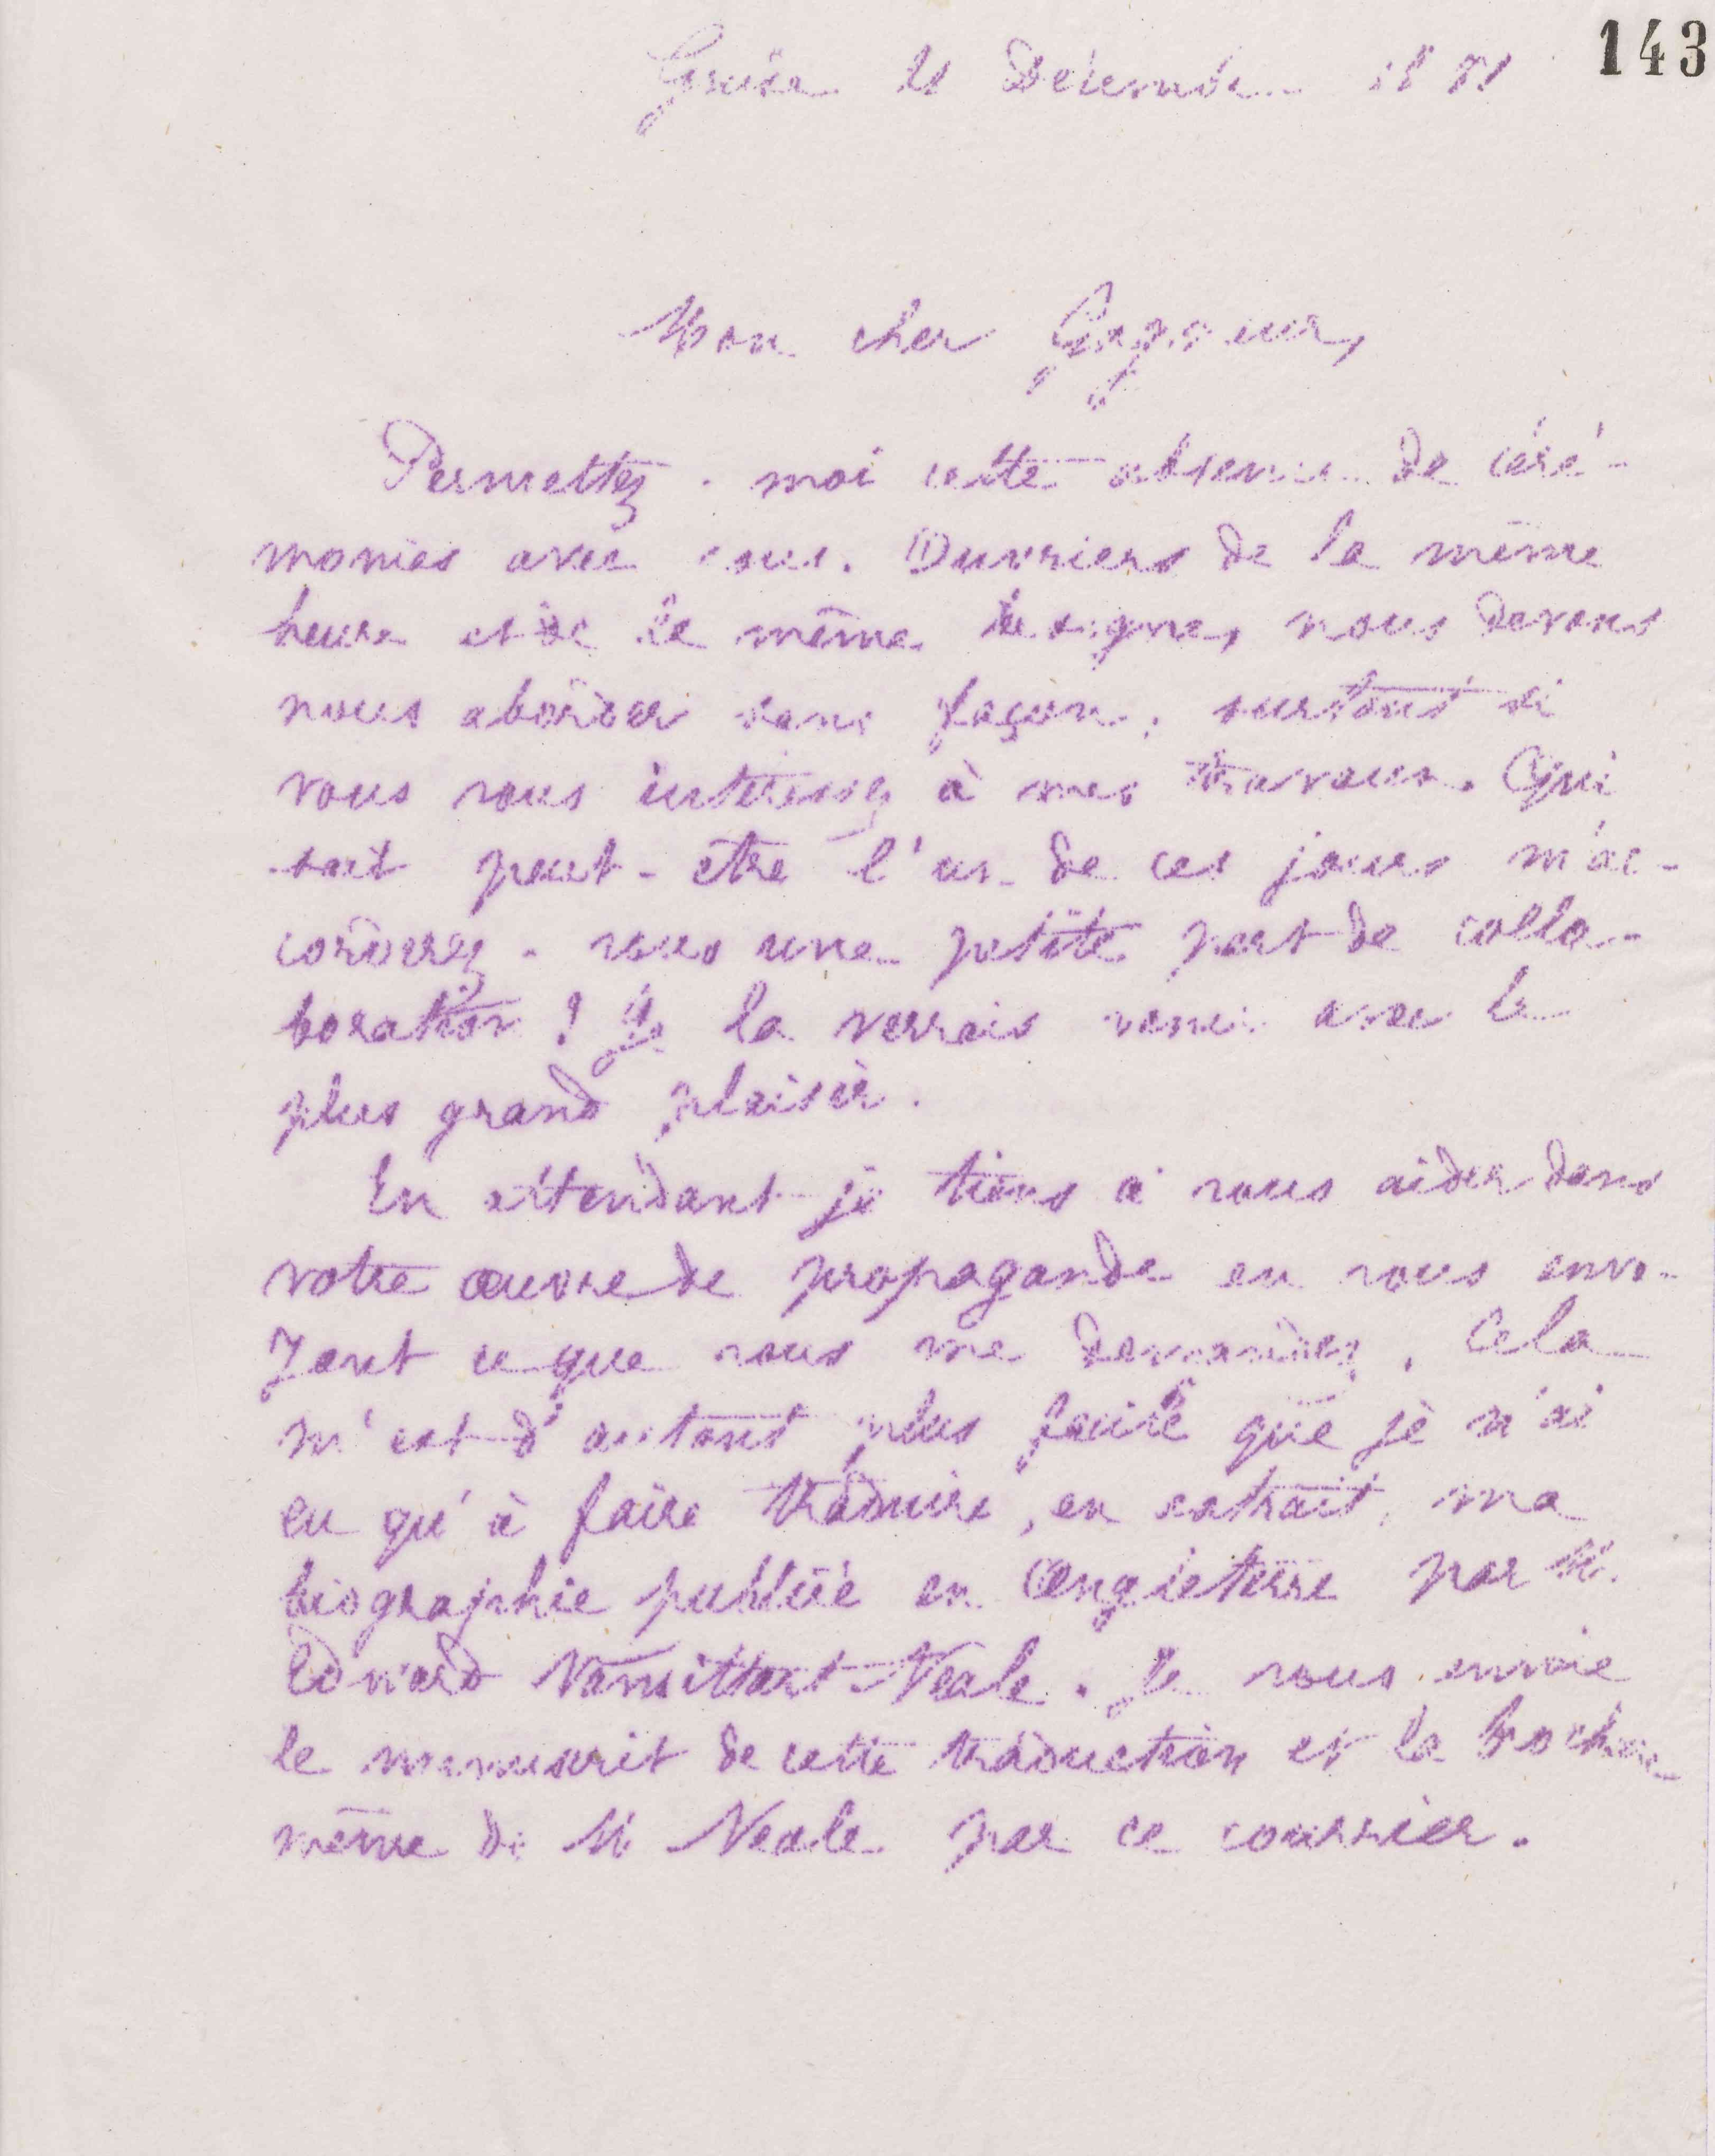 143
Guise 21 Décembre 1881
Mon cher Gagneur,
Permettez-moi cette absence de céré-
monies avec vous. Ouvriers de la même
heure et de la même besogne, nous devons
nous aborder sans façon, surtout si
vous vous intéressez à mes travaux. Qui
sait peut-être l'un de ces jours m'ac-
corderez-vous une petite part de colla-
boration ! Je la verrais venir avec le
plus grand plaisir.
En attendant je tiens à vous aider dans
votre œuvre de propagande en vous envo-
yant ce que vous me demandez. Cela
m'est d'autant plus facile que je n'ai
eu qu'à faire traduire, en extrait, ma
biographie publiée en Angleterre par M.
Edward Vansittart Neale. Je vous envoie
le manuscrit de cette traduction et la brochure
même de M Neale par ce courrier.